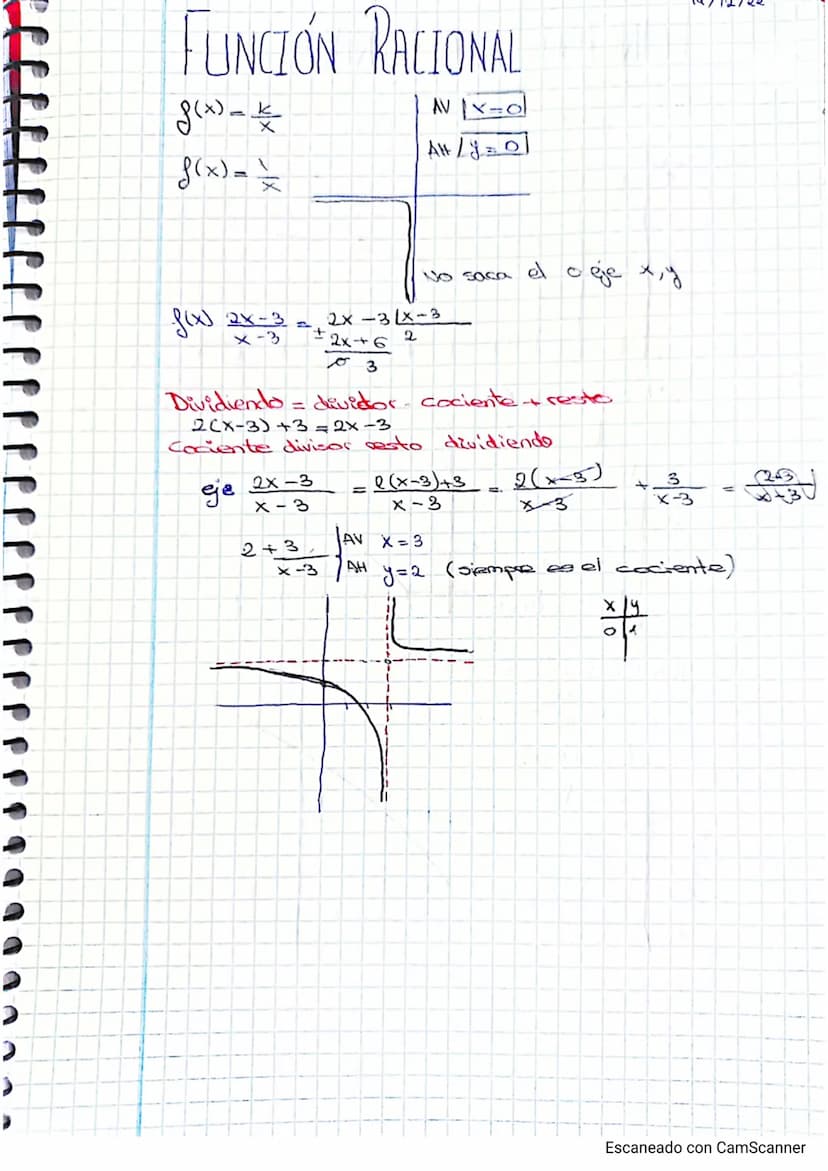 14/12/22
FUNCIÓN RACIONAL
f(x) = k/x
AV | x=0
AH / y=0
f(x) = 1/x
No saca el o eje x,y
f(x) 2x-3/x-3 = 2x -3 | x-3
± 2x+6 2
0 3
Dividiendo = dividor · cociente + resto
2(x-3) +3 = 2x -3
Cociente divisor resto dividiendo
eje 2x-3/x-3 = 2(x-3)+3/x-3 = 2(x-3)/x-3 + 3/x-3 =
2+3/x-3 AV x=3
AH y=2 (siempre es el cociente)
x | y
0 | 1
Escaneado con CamScanner